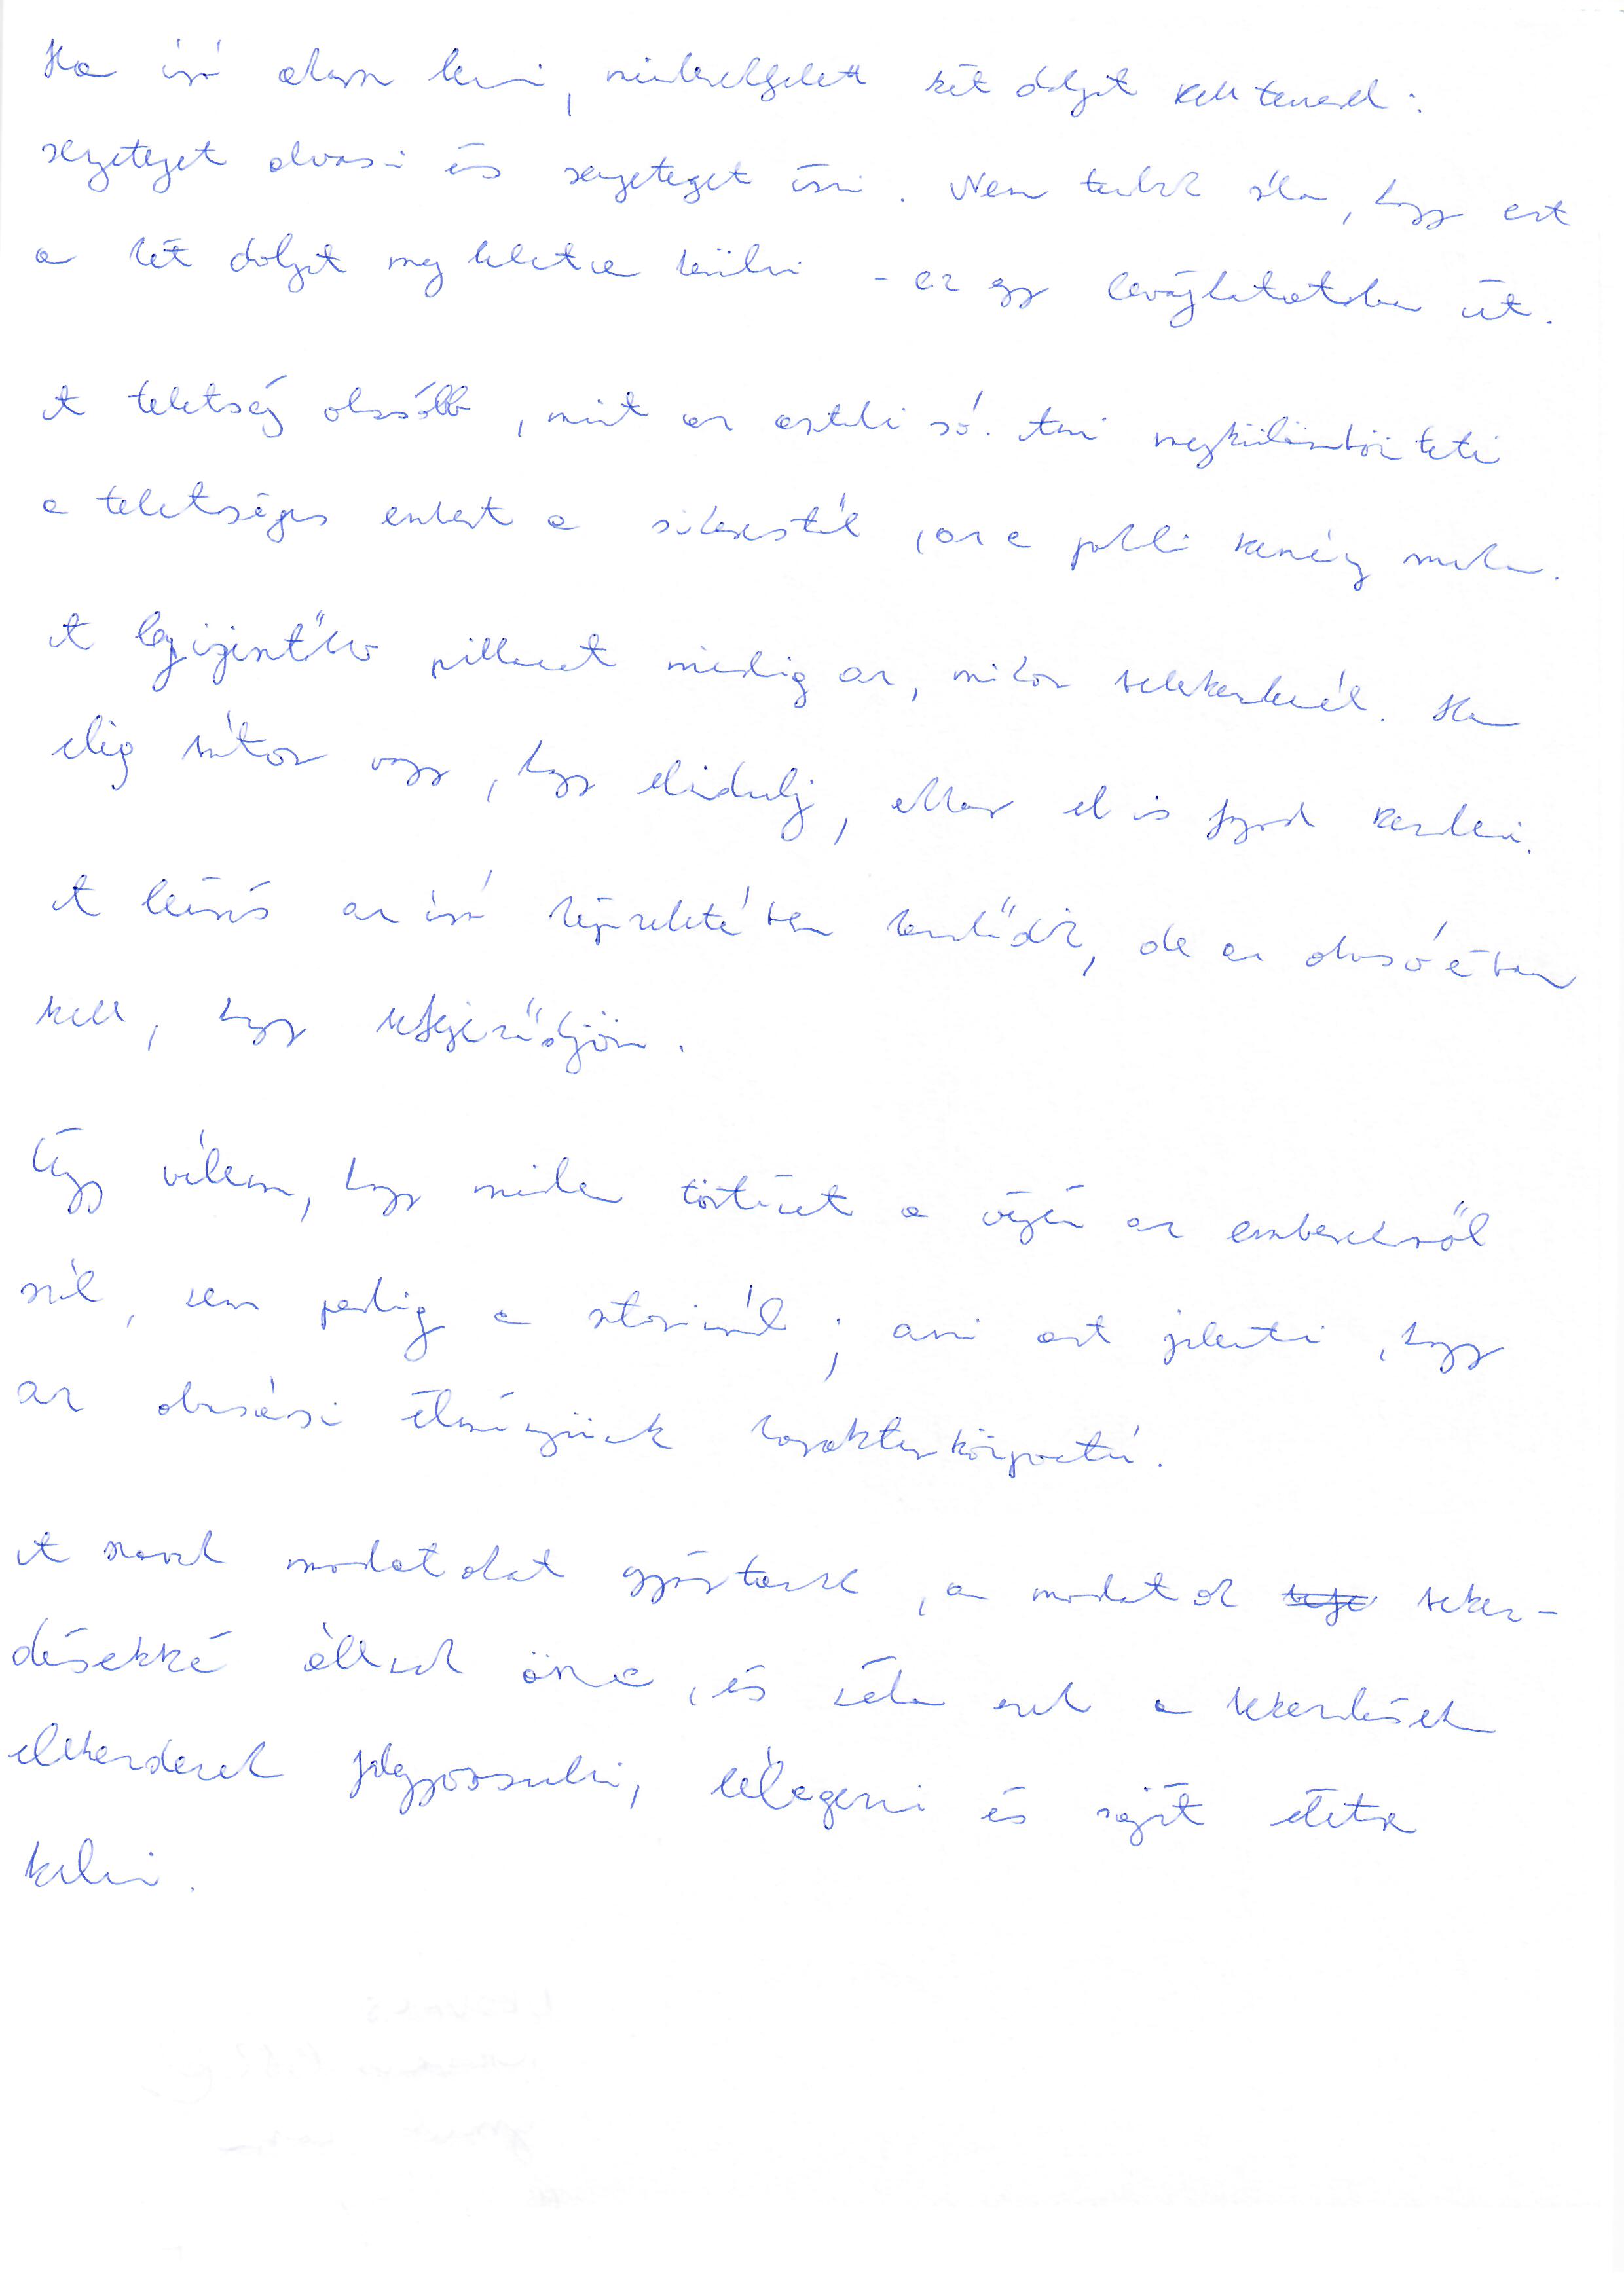 Ha író akarsz lenni, mindenekfelett két dolgot kell tenned:
rengeteget olvasni és rengeteget írni. Nem tudok róla, hogy ezt
a két dolgot meg lehetne kerülni - ez egy levághatatlan út.
A tehetség olcsóbb, mint az asztali só. Ami megkülönbözteti
a tehetséges embert a sikerestől, az a pokoli kemény munka.
A legijesztőbb pillanat mindig az, mikor belekezdenél. Ha
elég bátor vagy, hogy elindulj, akkor el is fogod kezdeni.
A leírás az író képzeletében kezdődik, de az olvasóéban
kell, hogy befejeződjön.
Úgy vélem, hogy minden történet a végén az emberekről
szól, sem pedig a sztoriról; ami azt jelenti, hogy
az olvasási élményünk karakterközpontú.
A szavak mondatokat gyártanak, a mondatok bekez-
désekké állnak össze, és néha ezek a bekezdések
elkezdenek felgyorsulni, lélegezni és saját életre
kelni.